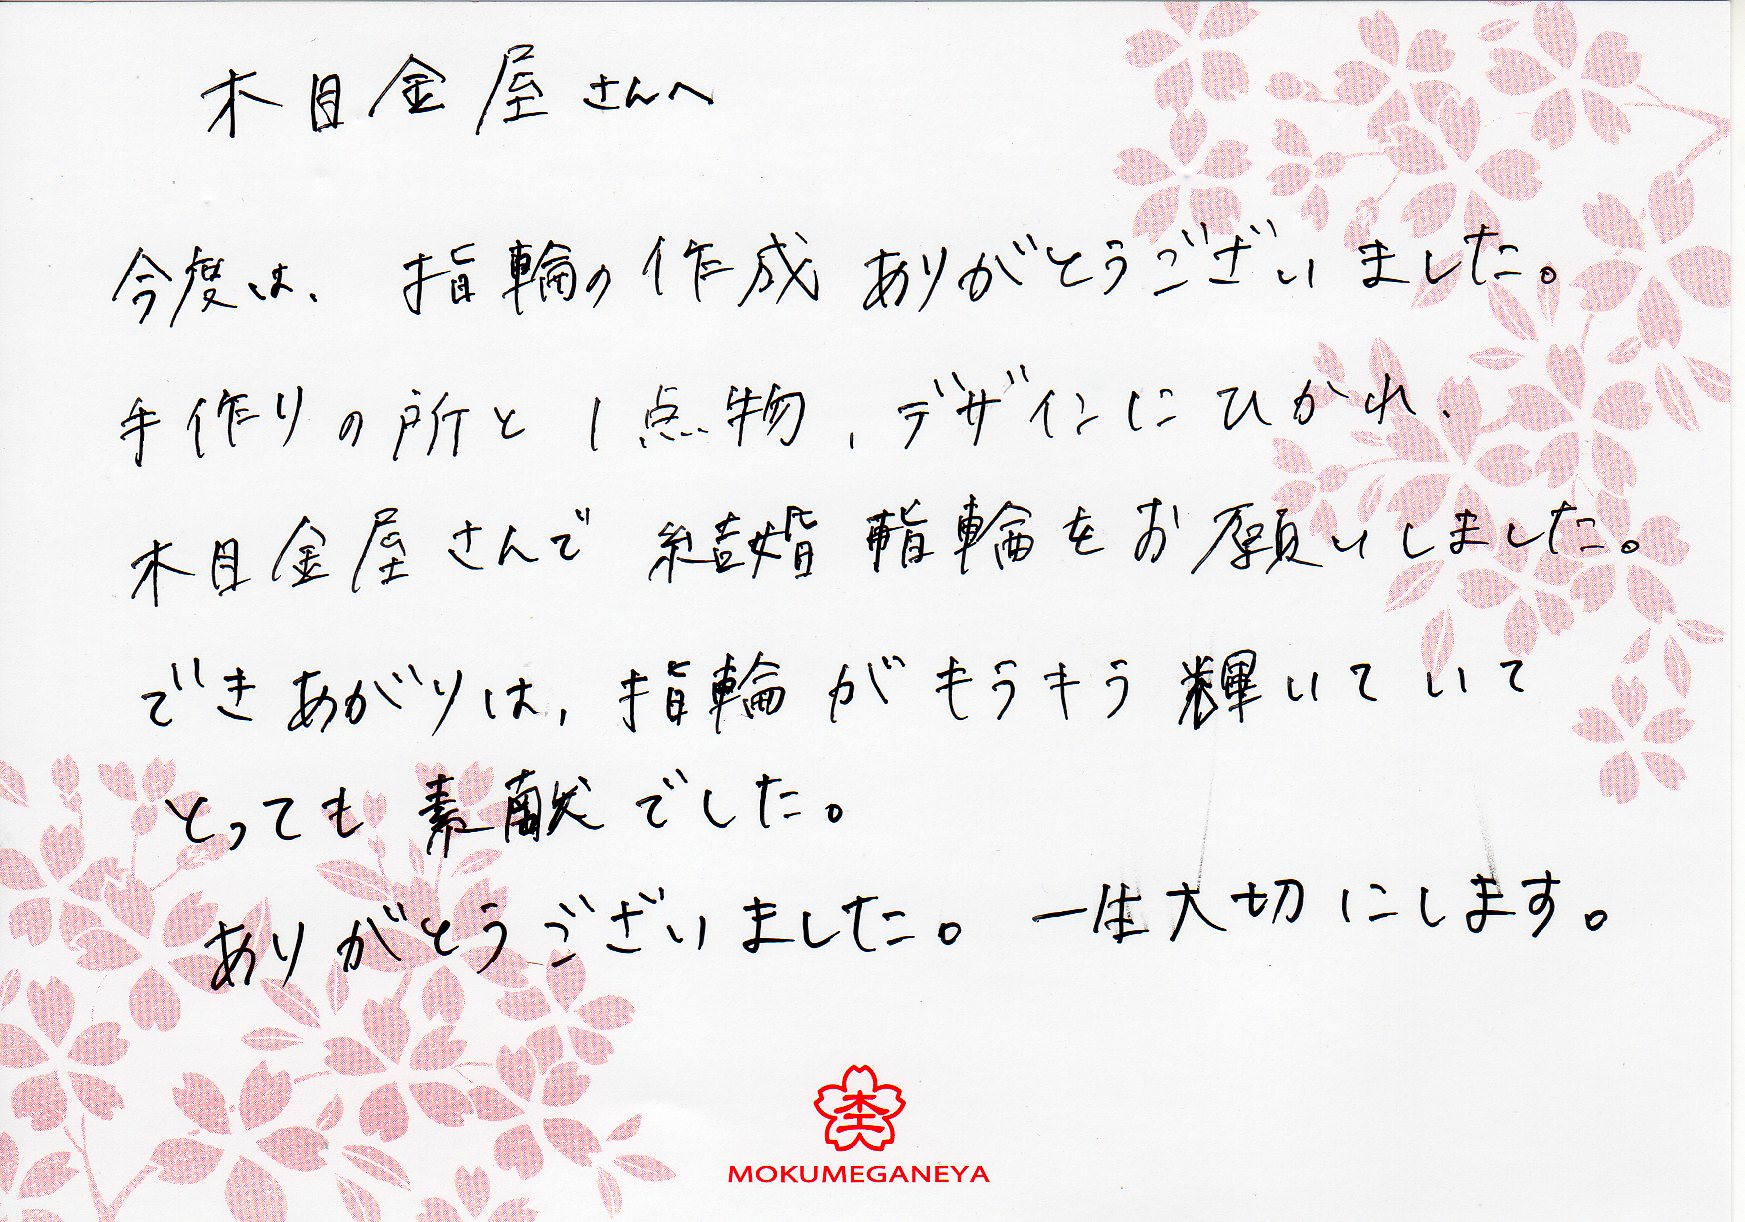 木目金屋さんへ
今度は、指輪の作成ありがとうございました。
手作りの所と1点物、デザインにひかれ、
木目金屋さんで結婚指輪をお願いしました。
できあがりは、指輪がキラキラ輝いていて
とっても素敵でした。
ありがとうございました。一生大切にします。
MOKUMEGANEYA